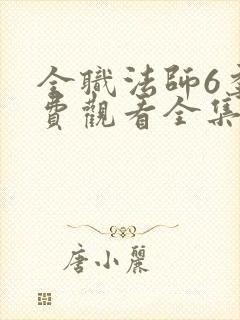 全職法師6
費觀看全集
唐小麗